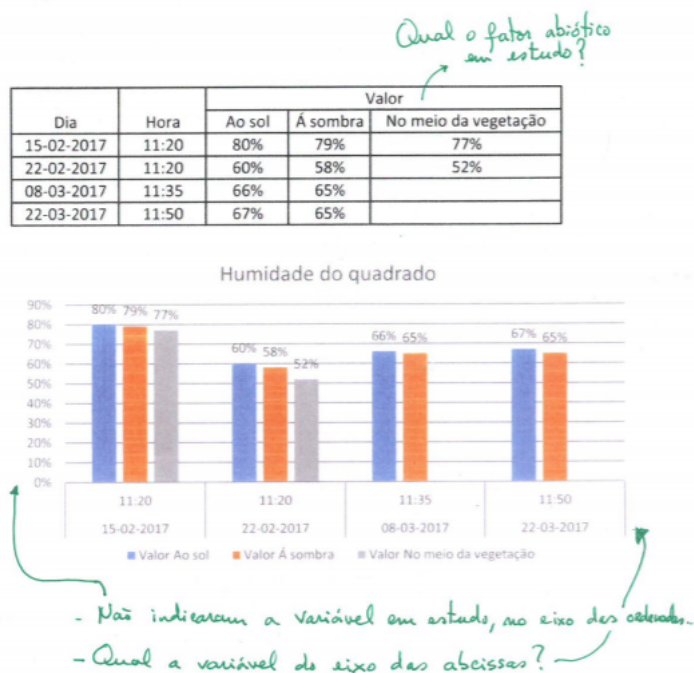 Qual o fator abiótico
em estudo?
Valor
Dia Hora Ao sol Á sombra No meio da vegetação
15-02-2017 11:20 80% 79% 77%
22-02-2017 11:20 60% 58% 52%
08-03-2017 11:35 66% 65%
22-03-2017 11:50 67% 65%
Humidade do quadrado
90%
80%
70%
60%
50%
40%
30%
20%
10%
0%
80% 79% 77%
60% 58% 52%
66% 65%
67% 65%
11:20 11:20 11:35 11:50
15-02-2017 22-02-2017 08-03-2017 22-03-2017
Valor Ao sol Valor Á sombra Valor No meio da vegetação
- Não indicaram a variável em estudo, no eixo das ordenadas.
- Qual a variável do eixo das abcissas?